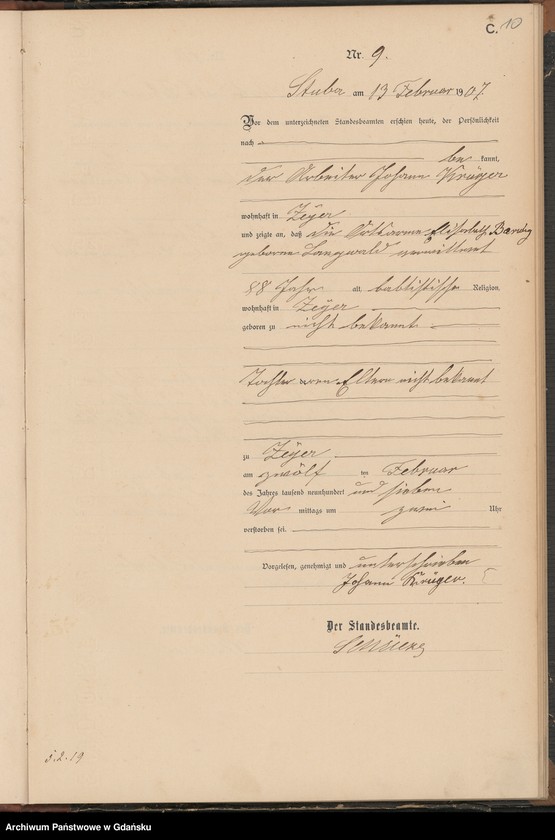 C. 10
Nr. 9.
Stuba am 13 Februar 1907.
Vor dem unterzeichneten Standesbeamten erschien heute, der Persönlichkeit
nach
be kannt,
der Arbeiter Johann Krüger
wohnhaft in Zeyer
und zeigte an, daß die Ortsarme Elisabeth
geborene Langwald verwittwet
88 Jahr alt, babtistische Religion,
wohnhaft in Zeyer
geboren zu nicht bekannt
Tochter von Eltern nicht bekannt
zu Zeyer
am zwölf ten Februar
des Jahres tausend neunhundert und sieben
Vor mittags um zwei Uhr
verstorben sei.
Vorgelesen, genehmigt und unterschrieben
Johann Krüger.
Der Standesbeamte.
5.2.19
Archiwum Państwowe w Gdańsku